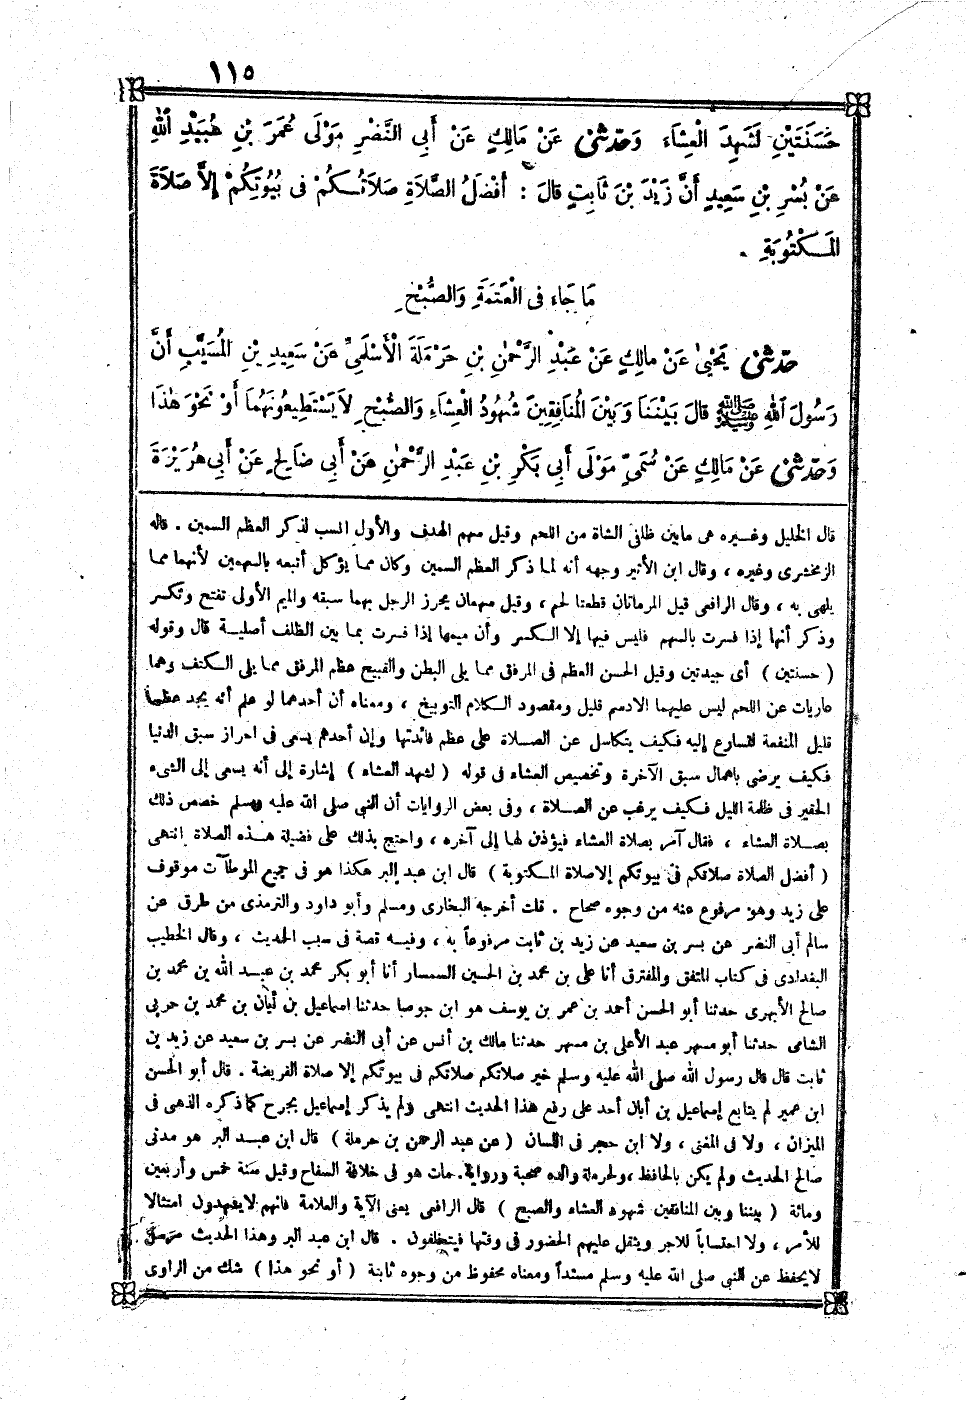 ١١٥
حَسَنَتَيْنِ لَشَهِدَ الْعِشَاءَ وَحَدَّثَنِي عَنْ مَالِكٍ عَنْ أَبِي النَّضْرِ مَوْلَى عُمَرَ بْنِ عُبَيْدِ اللهِ
عَنْ بُسْرِ بْنِ سَعِيدٍ أَنَّ زَيْدَ بْنَ ثَابِتٍ قَالَ : أَفْضَلُ الصَّلَاةِ صَلَاتُكُمْ فِى بُيُوتِكُمْ إِلَّا صَلَاةَ
الْمَكْتُوبَةِ .
مَا جَاءَ فِى الْعَتَمَةِ وَالصُّبْحِ
حَدَّثَنِي يَحْيَى عَنْ مَالِكٍ عَنْ عَبْدِ الرَّحْمٰنِ بْنِ حَرْمَلَةَ الْأَسْلَمِيِّ عَنْ سَعِيدِ بْنِ الْمُسَيَّبِ أَنَّ
رَسُولَ اللهِ ﷺ قَالَ بَيْنَنَا وَبَيْنَ الْمُنَافِقِينَ شُهُودُ الْعِشَاءِ وَالصُّبْحِ لَا يَسْتَطِيعُونَهُمَا أَوْ نَحْوَ هٰذَا
وَحَدَّثَنِي عَنْ مَالِكٍ عَنْ سُمَىٍّ مَوْلَى أَبِي بَكْرِ بْنِ عَبْدِ الرَّحْمٰنِ عَنْ أَبِي صَالِحٍ عَنْ أَبِي هُرَيْرَةَ
قال الخليل وغيره هى مابين ظلفى الشاة من اللحم وقيل سهم الهدف والأول انسب لذكر العظم السمين . قاله
الزمخشرى وغيره ، وقال ابن الأثير وجهه أنه لما ذكر العظم السمين وكان مما يؤكل أتبعه بالسهمين لأنهما مما
يلهى به ، وقال الرافعى قيل المرماتان قطعتا لحم ، وقيل سهمان يحرز الرجل بهما سبقه والميم الأولى تفتح وتكسر
وذكر أنها إذا فسرت بالسهم فليس فيها إلا الكسر وأن ميمها إذا فسرت بما بين الظلف أصلية قال وقوله
( حسنتين ) أى جيدتين وقيل الحسن العظم فى المرفق مما يلى البطن والقبيح عظم المرفق مما يلى الكتف وهما
عاريات عن اللحم ليس عليهما الادسم قليل ومقصود الكلام التوبيخ ، ومعناه أن أحدهما لو علم أنه يجد عظما
قليل المنفعة لتسارع إليه فكيف يتكاسل عن الصلاة على عظم فائدتها وإن أحدهم يسعى فى احراز سبق الدنيا
فكيف يرضى باهمال سبق الآخرة وتخصيص العشاء فى قوله ( لشهد العشاء ) إشارة إلى أنه يسعى إلى الشىء
الحقير فى ظلمة الليل فكيف يرغب عن الصلاة ، وفى بعض الروايات أن النبى صلى الله عليه وسلم خصص ذلك
بصلاة العشاء ، فقال آمر بصلاة العشاء فيؤذن لها إلى آخره ، واحتج بذلك على فضيلة هذه الصلاة انتهى
( أفضل الصلاة صلاتكم فى بيوتكم إلا صلاة المكتوبة ) قال ابن عبد البر هكذا هو فى جميع الموطآت موقوف
على زيد وهو مرفوع عنه من وجوه صحاح . قلت أخرجه البخارى ومسلم وأبو داود والترمذى من طرق عن
سالم أبى النضر عن بسر بن سعيد عن زيد بن ثابت مرفوعاً به ، وفيه قصة فى سبب الحديث ، وقال الخطيب
البغدادى فى كتاب المتفق والمفترق أنا على بن محمد بن الحسين السمسار أنا أبو بكر محمد بن عبد الله بن محمد بن
صالح الأبهرى حدثنا أبو الحسن أحمد بن عمر بن يوسف هو ابن جوصا حدثنا اسماعيل بن أبان بن محمد بن حربى
الشامى حدثنا أبو مسهر عبد الأعلى بن مسهر حدثنا مالك بن أنس عن أبى النضر عن بسر بن سعيد عن زيد بن
ثابت قال قال رسول الله صلى الله عليه وسلم خير صلاتكم صلاتكم فى بيوتكم إلا صلاة الفريضة . قال أبو الحسن
ابن عمير لم يتابع إسماعيل بن أبان أحد على رفع هذا الحديث انتهى ولم يذكر إسماعيل بجرح كما ذكره الذهبى فى
الميزان ، ولا فى المغنى ، ولا ابن حجر فى اللسان ( عن عبد الرحمن بن حرملة ) قال ابن عبد البر هو مدنى
صالح الحديث ولم يكن بالحافظ ، ولحرملة والده صحبة ورواية . مات هو فى خلافة السفاح وقيل سنة خمس وأربعين
ومائة ( بيننا وبين المنافقين شهود العشاء والصبح ) قال الرافعى يعنى الآية والعلامة فانهم لا يشهدون امتثالا
للأمر ، ولا احتساباً للاجر ويثقل عليهم الحضور فى وقتها فيتخلفون . قال ابن عبد البر وهذا الحديث مرسل
لا يحفظ عن النبى صلى الله عليه وسلم مسنداً ومعناه محفوظ من وجوه ثابتة ( أو نحو هذا ) شك من الراوى